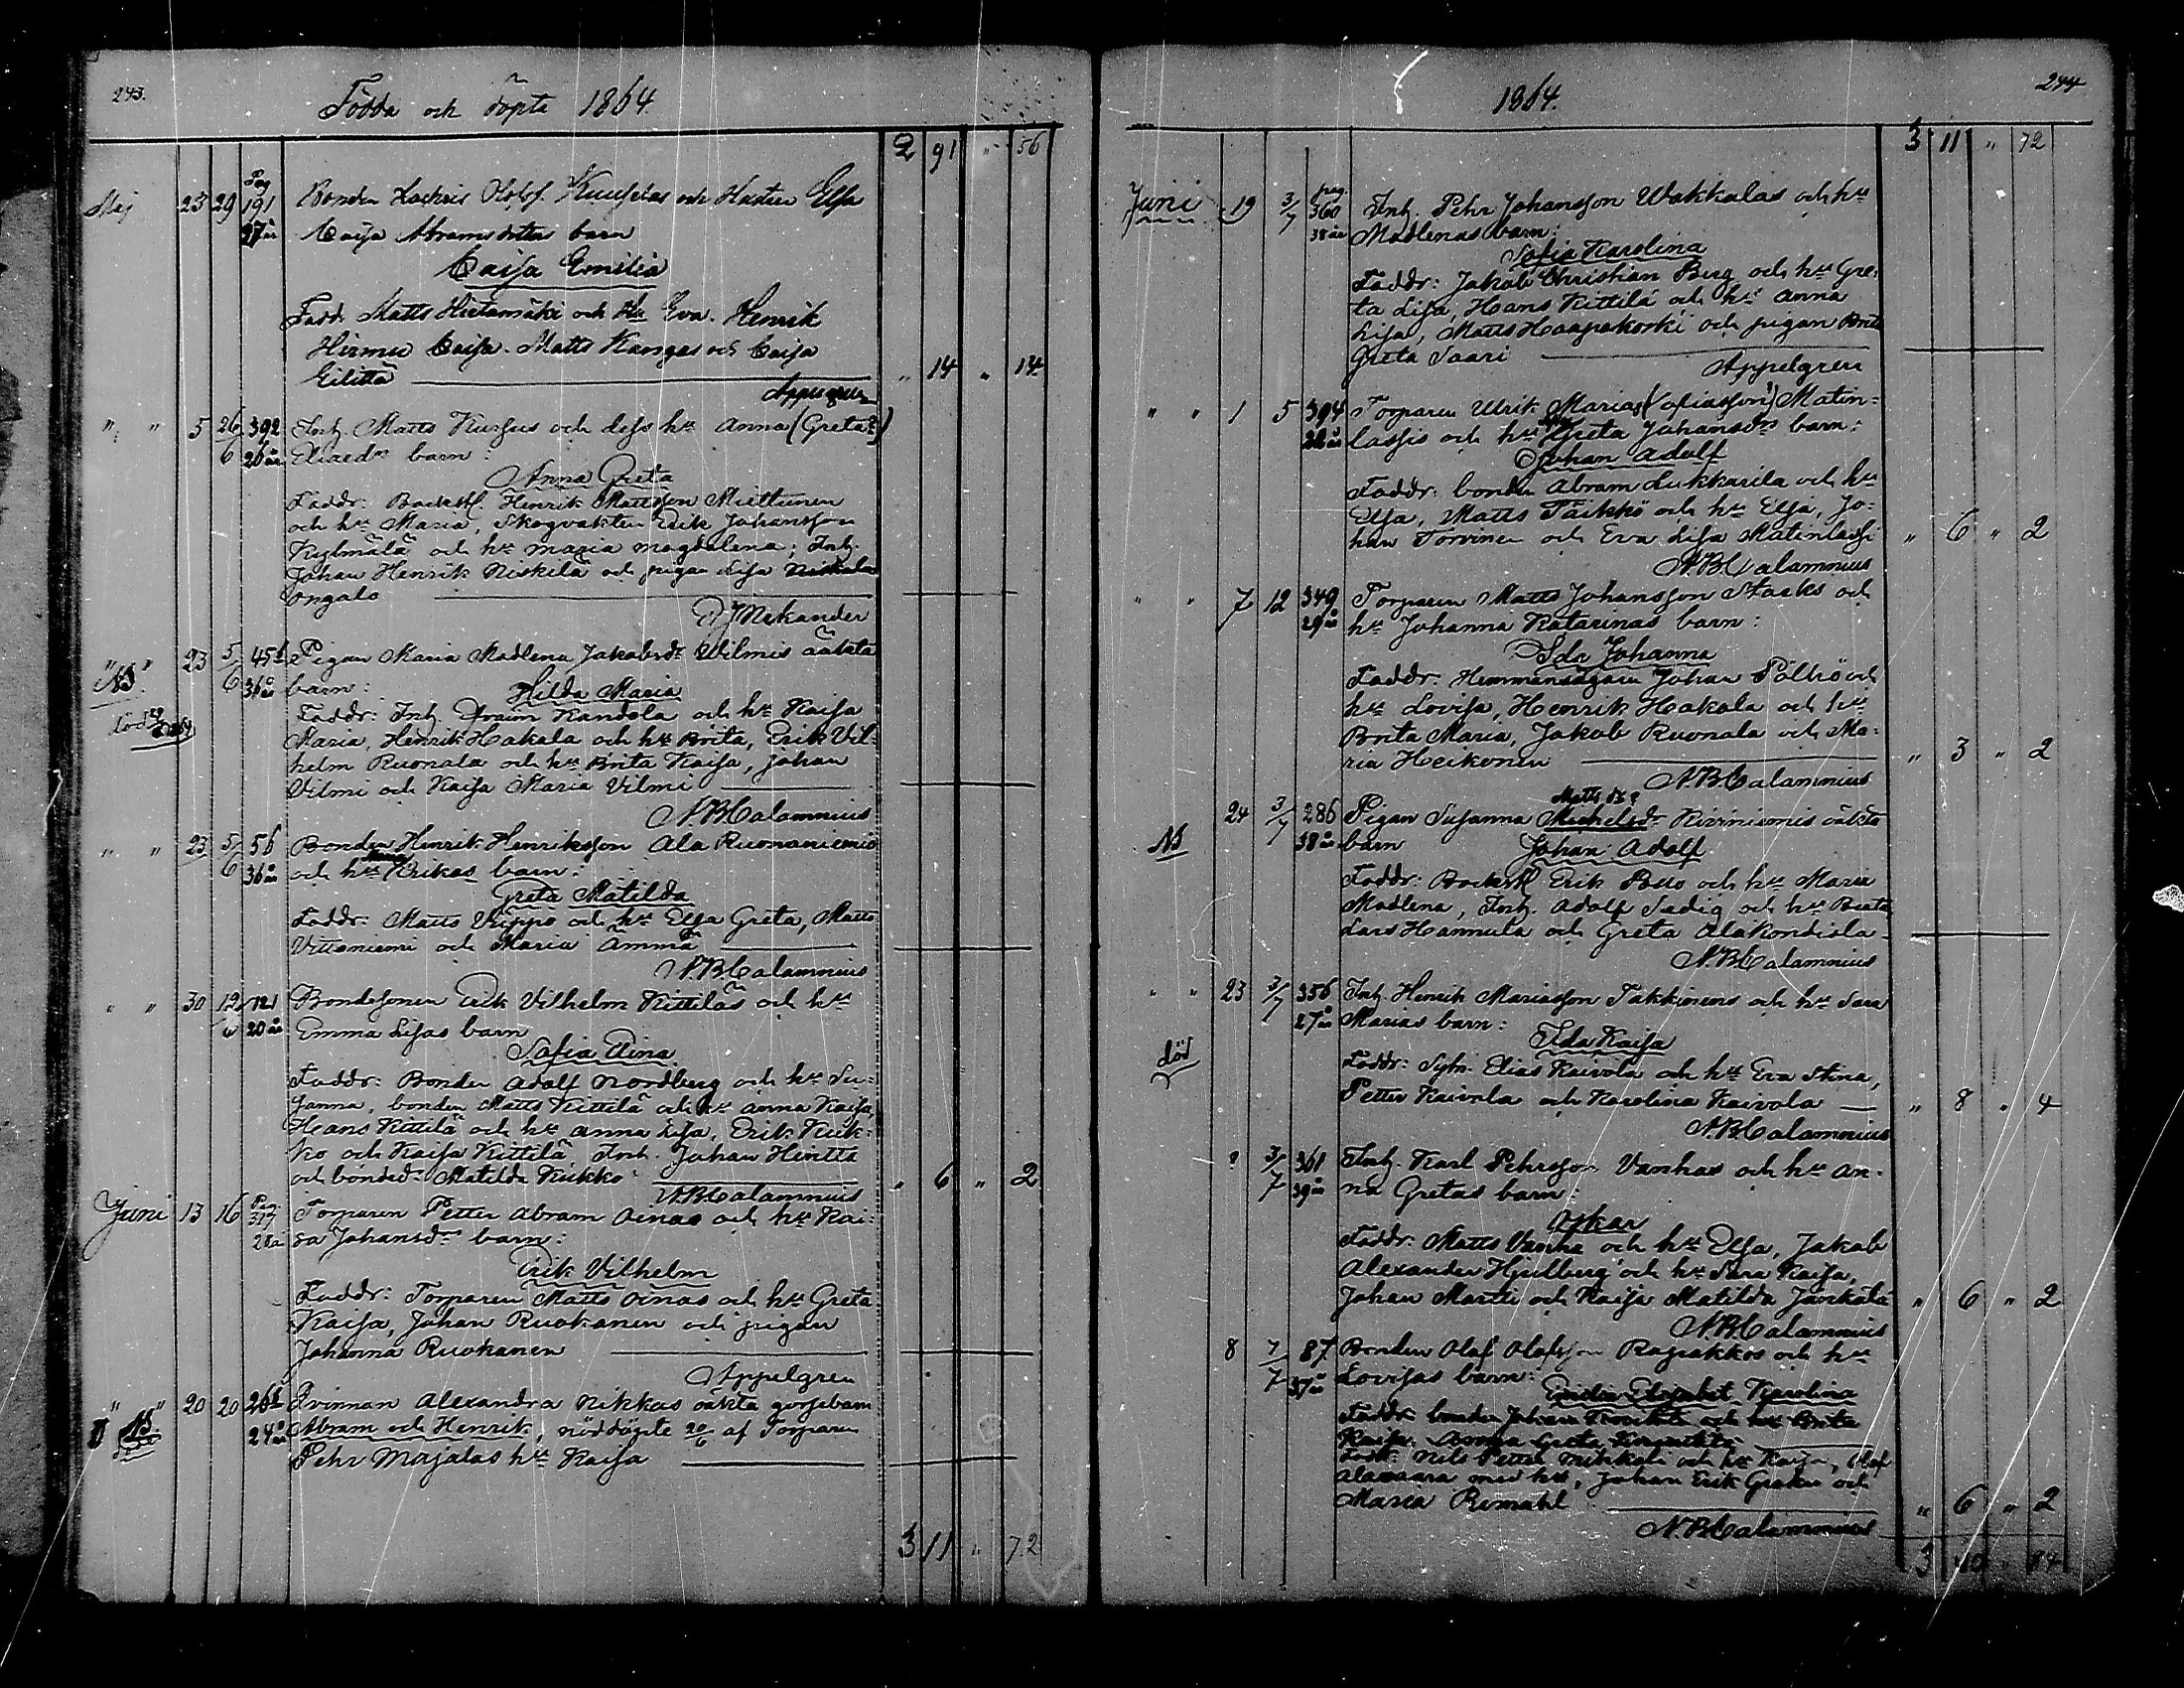 243.
Födda och döpta 1864.
2 91 " 56
Maj 23 29 Pag 191 Bonden Zachris Olofss. Kuuselas och Hustru Elsa
27 år Caisa Abramsdotters barn
Caisa Emilia
Fadd. Matts Hietamäki och Hu Eva. Henrik
Hirmu Caisa. Matts Kangas och Caisa
" 14 " 14
Appelgren
" " 5 26/6 392 Inh. Matts Kursus och dess hu Anna (Greta?)
26 år Eliaedr barn:
Anna Greta
Faddr: Backstl. Henrik Mattsson Miettunen
och hu Maria, Skogvakten Erik Johansson
och hu Maria Magdalena; Inh.
Johan Henrik Niskela och pigan Lisa Niskala
Ongalo
Mekander
" " 23 5/6 456 Pigan Maria Madlena Jakobsdr Vilmis oäkta
NB. 36 år barn: Hilda Maria
död
Faddr: Inh. Kandola och hu Kaisa
Maria, Henrik Hakala och hu Brita, Erik Vil=
helm Ruonala och hu Brita Kaisa, Johan
Vilmi och Kaisa Maria Vilmi
N.B. Calamnius
" " 23 5/6 56 Bonden Henrik Henriksson Ala Ruonaniemis
Maria
36 år och hu Erikas barn:
Greta Matilda
Faddr: Matts Vuippo och hu Elsa Greta, Matts
Vittaniemi och Maria Ämmä
N.B. Calamnius
" " 30 12/6 121 Bondesonen Erik Vilhelm Kittiläs och hu
20 år Emma Lisas barn
Sofia Elina
Faddr: Bonden Adolf Nordberg och hu Su=
sanna, bonden Matts Kittilä och hu Anna Kaisa,
Hans Kittilä och hu Anna Lisa, Erik Kuk=
ko och Kaisa Kittilä Inh. Johan Hintta
och bonded. Matilda Kukko
" 6 " 2
N.B. Calamnius
Juni 13 16 Pag. 317 Torparen Petter Abram Oinas och hu Kai=
28 å sa Johansdr barn:
Erik Vilhelm
Faddr: Torparen Matts Oinas och hu Greta
Kaisa, Johan Ruokanen och pigan
Johanna Ruokanen
Appelgren
" " 20 20 Qvinnan Alexandra Nikkas oäkta gossebarn
NB. 24 år Abram och Henrik, nöddöpte 20/6 af Torparen
Pehr Majalas hu Kaisa
3 11 " 72
1864.
244
3 11 " 72
Juni 19 3/7 pag. 360 Inh. Pehr Johansson Wakkalas och hu
38 år Madlenas barn:
Sofia Karolina
Faddr: Jakob Christian Berg och hu Gre=
ta Lisa, Hans Kittilä och hu Anna
Lisa, Matts Haapakorki och pigan Brita
Greta Saari
Appelgren
" " 1 5 394 Torparen Ulrik Mariass. Matin=
22 år lassis och hu Greta Johansdrs barn:
Johan Adolf
Faddr: bonden Abram Lukkarila och hu
Elsa, Matts Päikkö och hu Elsa, Jo=
han Torvinen och Eva Lisa Matinlassi
" 6 " 2
N.B. Calamnius
" " 7 12 349 Torparen Matts Johansson Starks och
29 år hu Johanna Katarinas barn:
Ida Johanna
Faddr: Hemmansägaren Johan Pölhö och
hu Lovisa, Henrik Hakala och hu
Brita Maria, Jakob Ruonala och Ma=
ria Heikonen
" 3 " 2
N.B. Calamnius
Matts dr?
24 3/7 286 Pigan Susanna Michelsdr Kiviniemis oäkta
NB 38 år barn Johan Adolf
Faddr: Backstl Erik och hu Maria
Madlena, Inh. Adolf Sadig och hu Beata
Lars Hannula och Greta Alakondiola
N.B. Calamnius
" " 23 3/7 356 Inh. Henrik Mariasson Takkinens och hu Sara
27 år Marias barn:
Ida Kaisa
död
Faddr: Sytn. Elias Kaivola och hu Eva Stina,
Petter Kaivola och Karolina Kaivola
" 8 " 4
N.B. Calamnius
? 3/7 361 Inh. Karl Pehrsson Vanhas och hu An=
39 år na Gretas barn:
Oskar
Faddr: Matts Vanha och hu Elsa, Jakob
Alexander Hjulberg och hu Sara Kaisa,
Johan Martti och Kaisa Matilda Jänkälä
" 6 " 2
N.B. Calamnius
8 7/7 87 Bonden Olof Olofsson Rapakkos och hu
37 år Lovisas barn:
Emilia Elisabet Karolina
Faddr: bonden Johan och hu Brita
Kaisa. Anna Greta
Fadd: Nils Petter Nikkala och hu Kaisa, Olof
Alavaara med hu, Johan Erik och
Maria Rumahl
" 6 " 2
N.B. Calamnius
3 40 " 84